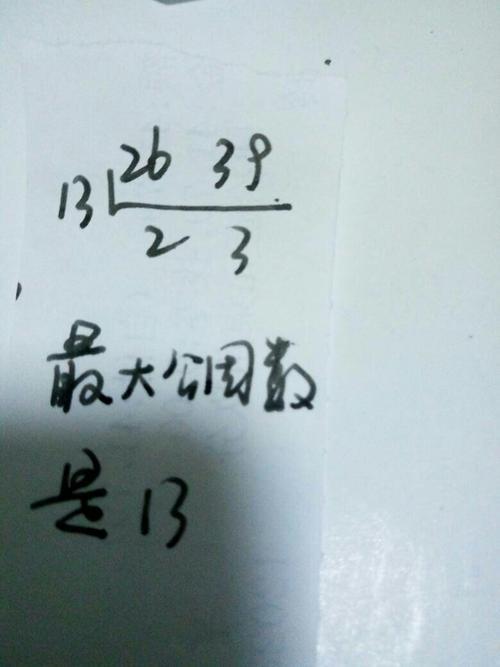 26 39
13
2 3
最大公因数
是13